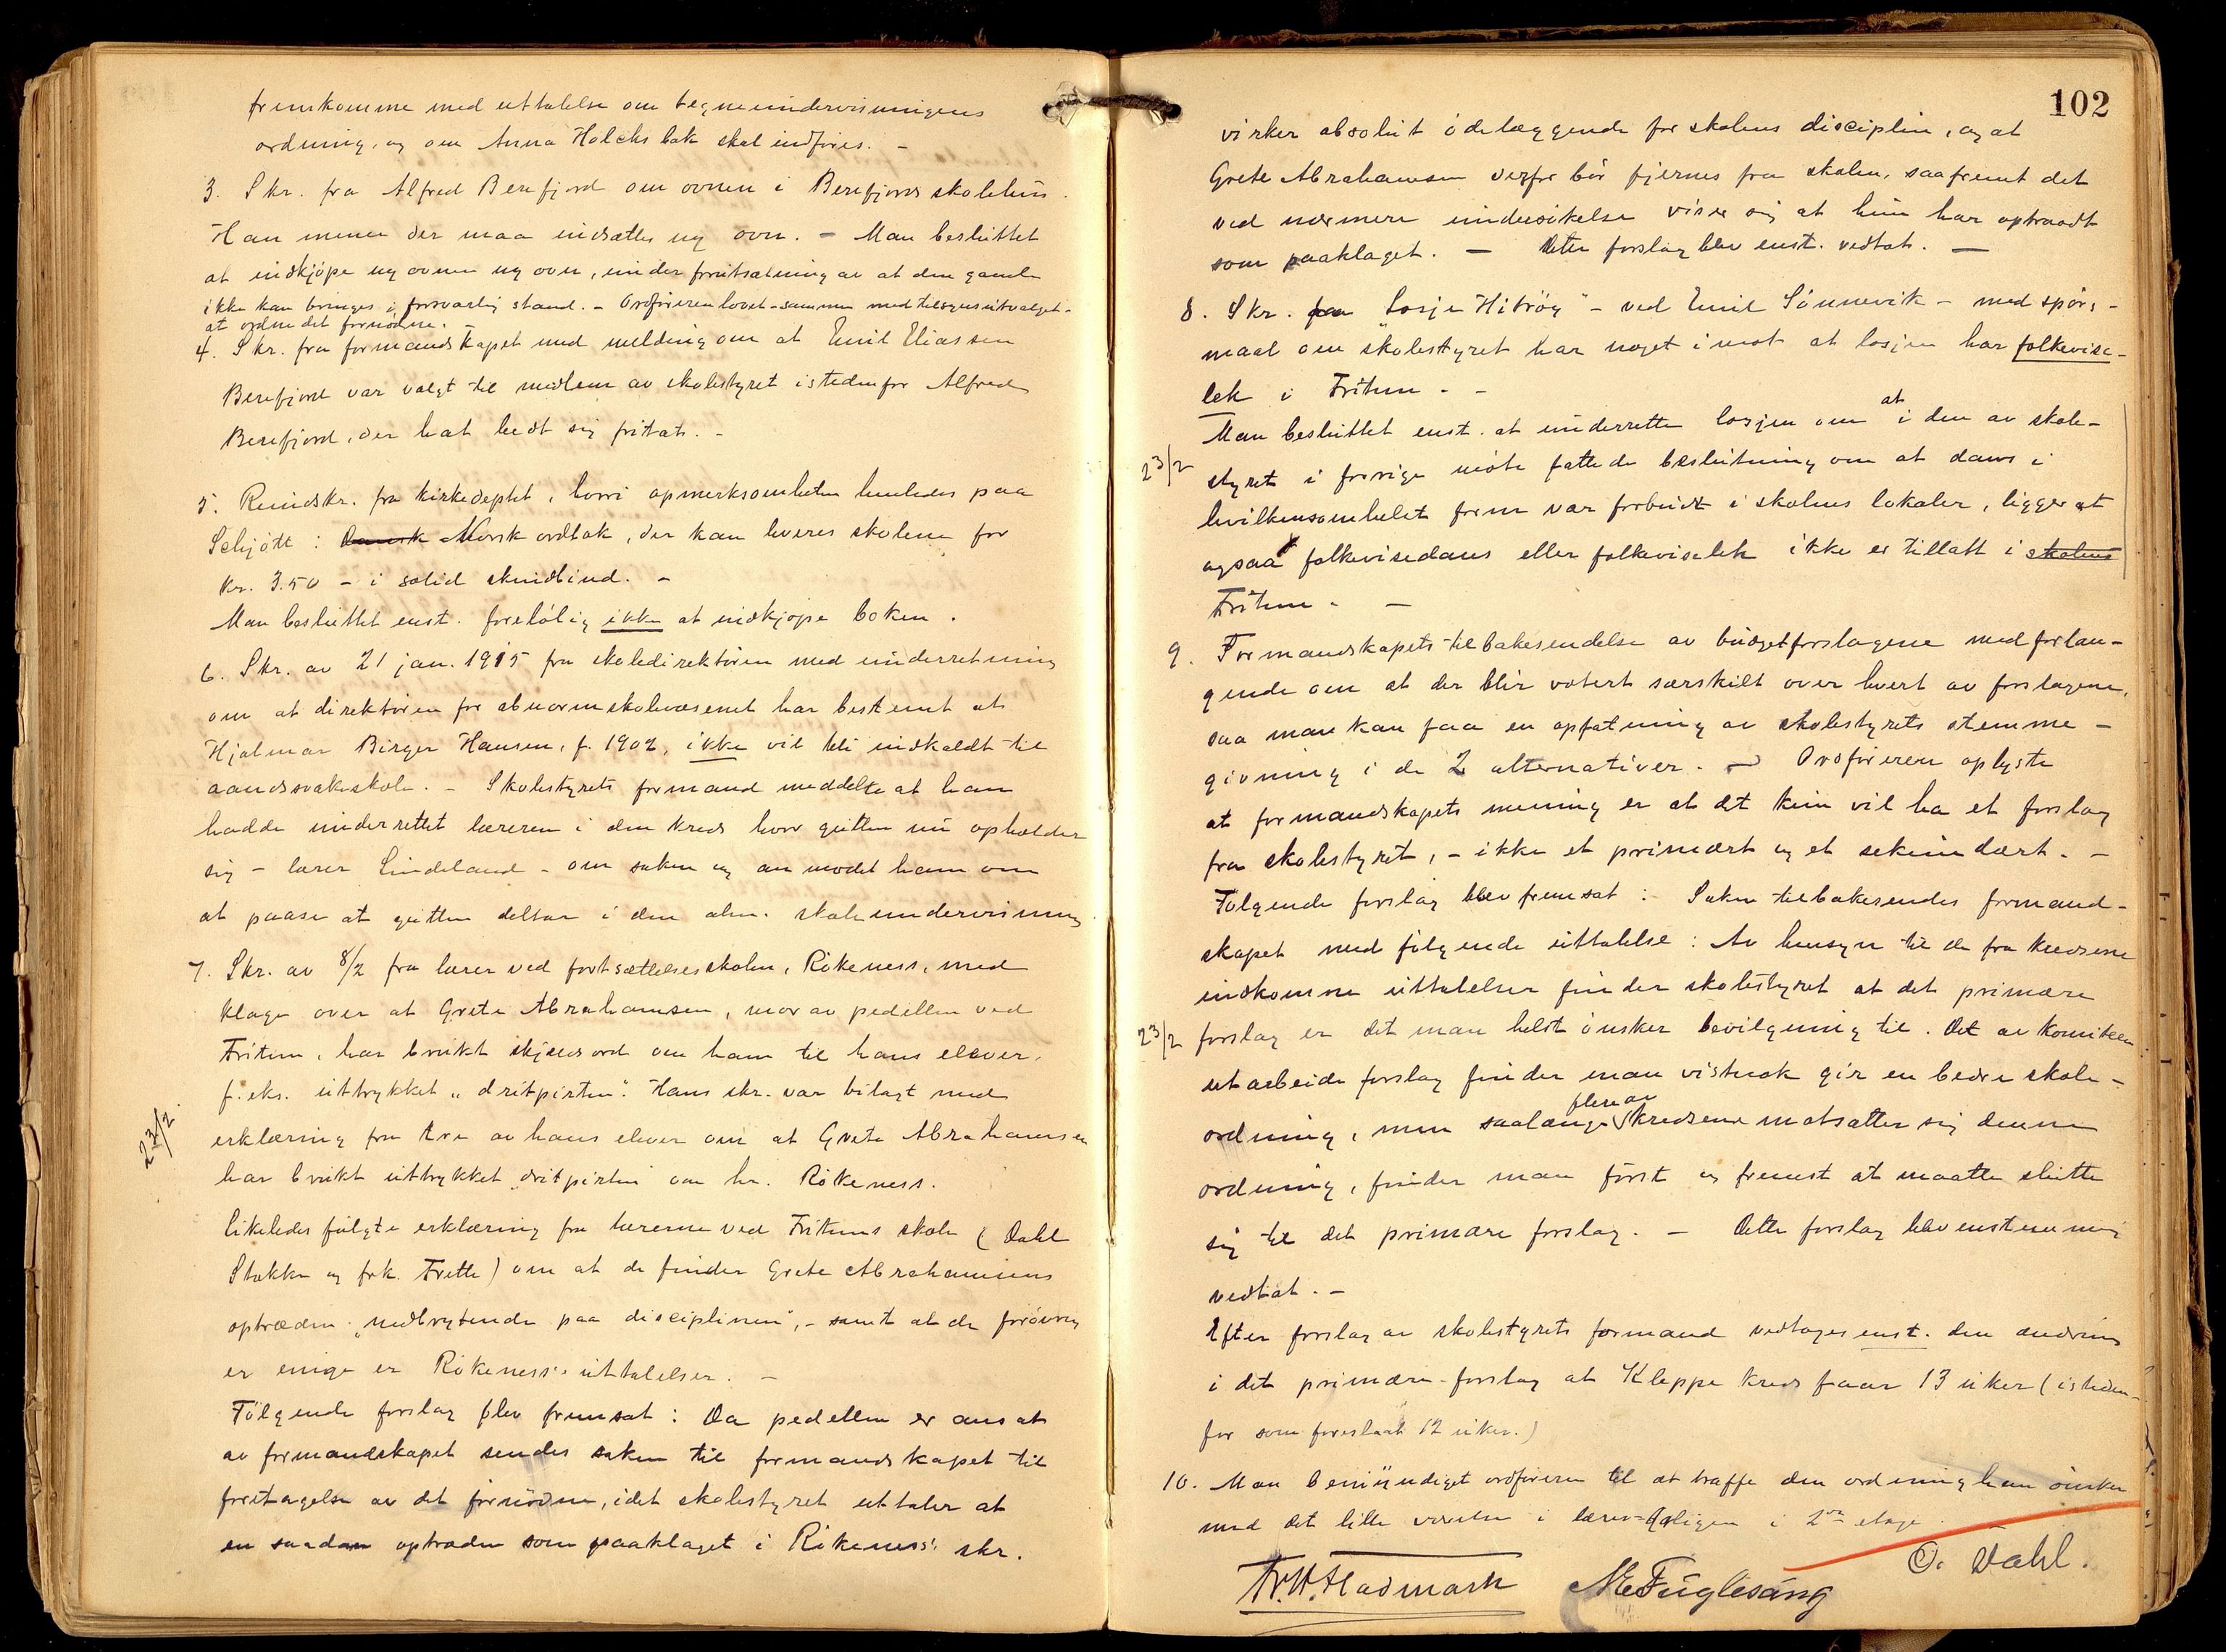 fremkomme med uttalelse om tegneundervisningens
ordning, og om Anna Holchs bok skal indføres. -
3. Skr. fra Alfred Berefjord om ovnen i Berefjords skolehus.
Han mener der maa indsættes ny ovn. - Man besluttet
at indkjøpe ny ovnen ny ovn, under forutsætning av at den gamle
ikke kan bringes i forsvarlig stand. - Ordføreren lovet - sammen med tilsynsutvalget -
at ordne det fornødne. -
4. Skr. fra formandskapet med melding om at Emil Eliassen
Berefjord var valgt til medlem av skolestyret istedenfor Alfred
Berefjord, der hat bedt sig fritat. -
5. Rundskr. fra kirkedeptet, hvori opmerksomheten henledes paa
Schjøtt: Dansk Norsk ordbok, der kan leveres skolene for
kr. 3.50 - i solid skindbind. -
Man besluttet enst. foreløbig ikke at indkjøpe boken.
6. Skr. av 21 jan. 1915 fra skoledirektøren med underretning
om at direktøren for abnormskolevæsenet har bestemt at
Hjalmar Birger Hansen, f. 1902, ikke vil bli indkaldt til
aandssvakeskole. - Skolestyrets formand meddelte at han
hadde underrettet læreren i den kreds hvor gutten nu opholder
sig - lærer Lindeland - om saken og anmodet ham om
at paase at gutten deltar i den alm. skoleundervisning
7. Skr. av 8/2 fra lærer ved fortsættelsesskolen, Rökeness, med
klage over at Grete Abrahamsen, mor av pedellen ved
Fritun, har brukt skjelsord om ham til hans elever,
f. eks. uttrykket "dritpirten". Hans skr. var bilagt med
23/2.
erklæring fra tre av hans elever om at Grete Abrahamsen
har brukt uttrykket dritpirten om hr. Rökeness.
Likeledes fulgte erklæring fra lærerne ved Frituns skole (Dahl
Stokke og frk. Frette) om at de finder Grete Abrahamsens
optræden "nedbrytende paa disciplinen", - samt at de forøvrig
er enige er Rökeness's uttalelser. -
Følgende forslag blev fremsat: Da pedellen er ansat
av formandskapet sendes saken til formandskapet til
foretagelse av det fornødne, idet skolestyret uttaler at
en saadan optræden som paaklaget i Rökeness's skr.
102
virker absolut ødelæggende for skolens disciplin, og at
Grete Abrahamsen derfor bør fjernes fra skolen, saafremt det
ved nærmere undersøkelse viser sig at hun har optraadt
som paaklaget. - Dette forslag blev enst. vedtat. -
8. Skr. fra "Losje Hitrøy" - ved Emil Sönnevik - med spørs-
maal om skolestyret har noget imot at losjen har folkevise-
lek i Fritun. -
Man besluttet enst. at underrette losjen om at i den av skole-
23/2
styret i forrige møte fattede beslutning om at dans i
hvilkensomhelst form var forbudt i skolens lokaler, ligger at
ogsaa folkevisedans eller folkeviselek ikke er tillatt i skolens
Fritun. -
9. Formandskapets tilbakesendelse av budgetforslagene med forlan-
gende om at der blir votert særskilt over hvert av forslagene,
saa man kan faa en opfatning av skolestyrets stemme-
givning i de 2 alternativer. - Ordføreren oplyste
at formandskapets mening er at det kun vil ha et forslag
fra skolestyret, - ikke et primært og et sekundært. -
Følgende forslag blev fremsat: Saken tilbakesendes formand-
skapet med følgende uttalelse: Av hensyn til de fra kredsene
indkomne uttalelser finder skolestyret at det primære
23/2 forslag er det man helst ønsker bevilgning til. Det av komiteen
utarbeide forslag finder man vistnok gir en bedre skole-
ordning, men saalænge flere av kredsene motsætter sig denne
ordning, finder man først og fremst at maatte slutte
sig til det primære forslag. - Dette forslag blev enstemmig
vedtat. -
Efter forslag av skolestyrets formand vedtages enst. den ændring
i det primære forslag at Kleppe kreds faar 13 uker (isteden-
for som foreslaat 12 uker.)
10. Man bemyndiget ordføreren til at træffe den ordning han ønsker
med det lille værelse i lærerboligen i 2den etage. -
Fr.W. Hadmark M E Fuglesang O. Dahl.